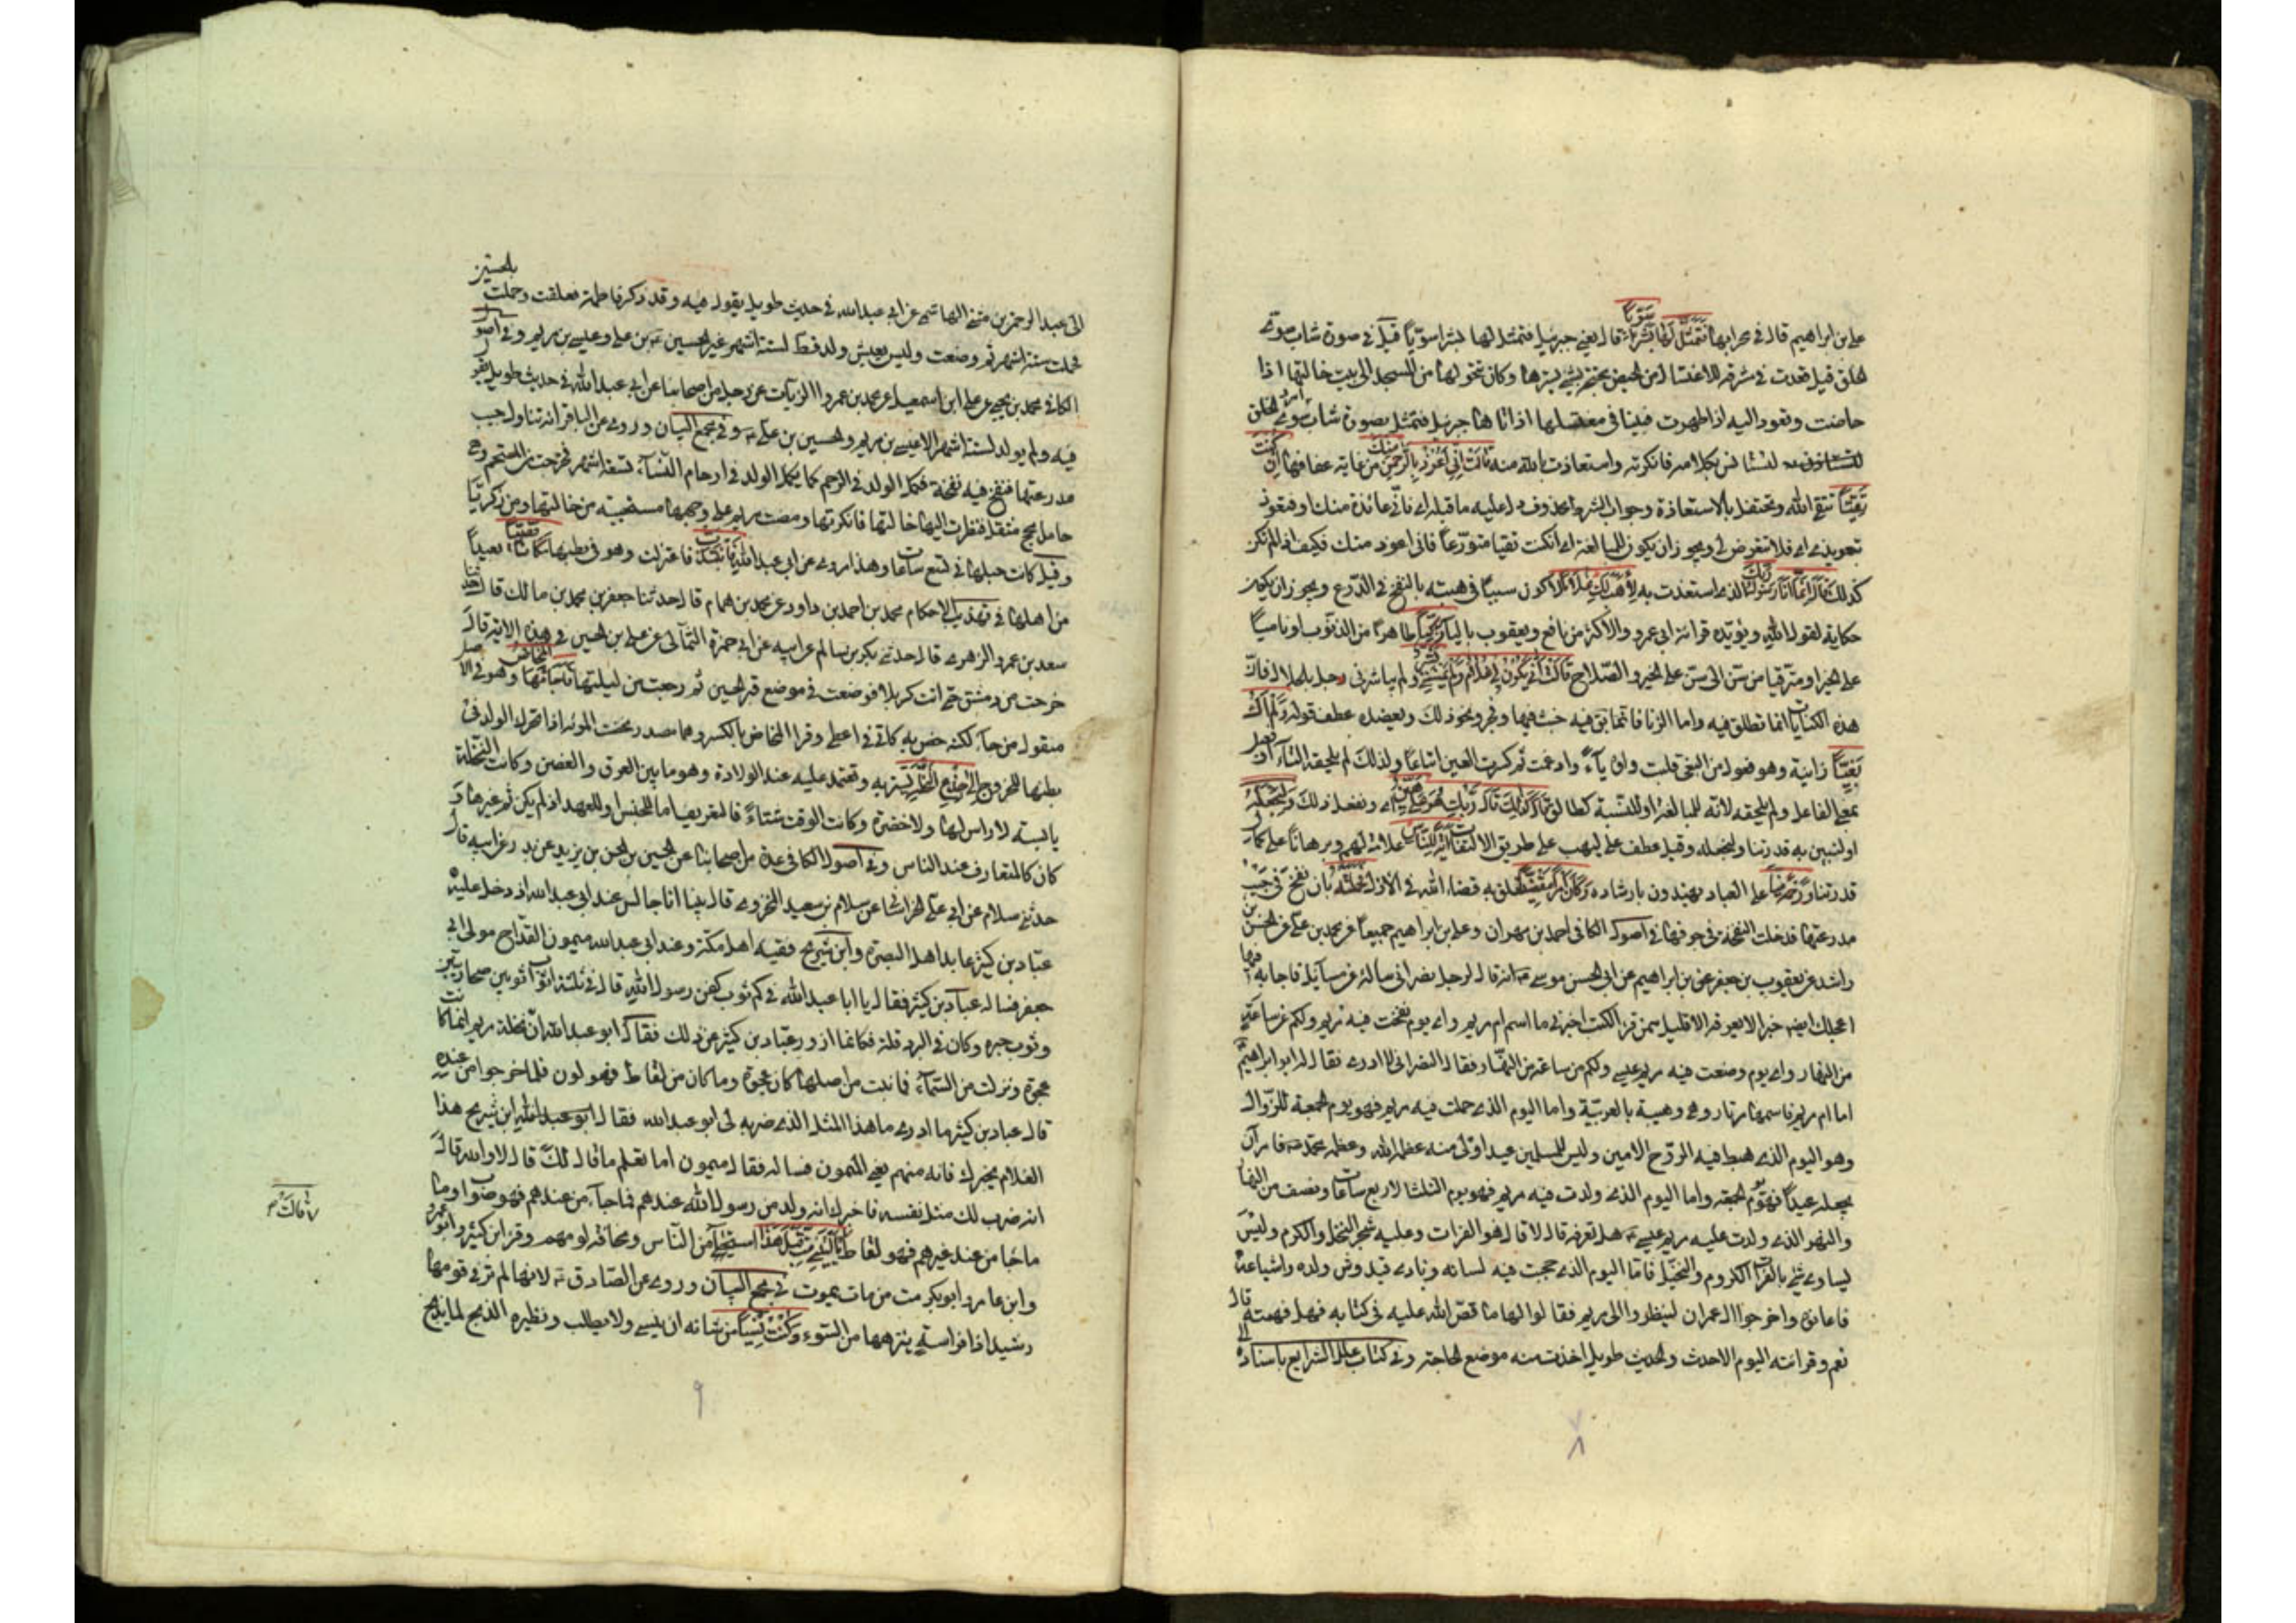 علي بن ابراهيم قال في محرابها فَتَمَثَّلَ لَهَا بَشَرًا سَوِيًّا قال يعني جبرئيل فتمثل لها بشرا سويّا قيل في صورة شاب سوى
الخلق قيل قعدت في مشرقة للاغتسال من الحيض محتجبة بشئ يسترها وكان تحولها من المسجد الى بيت خالتها اذا
حاضت وتعود اليه اذا طهرت فبينا في مغتسلها اذ اتاها جبرئيل فتمثل بصورة شاب امرد سوى الخلق
لتستأنس بكلامه فانكرته واستعاذت بالله منه قَالَتْ اِنّي اَعُوذُ بِالرَّحْمنِ مِنْكَ من غاية عفافها اِنْ كُنْتَ
تَقِيًّا تتقي الله وتحتفل بالاستعاذة وجواب الشرط محذوف دل عليه ما قبله اي فاني عائذة منك او فتعوذ
بتعويذي اى فلا تتعرض لي ويجوز ان يكون للمبالغة اى ان كنت تقيا متورّعاً فاني اعوذ منك فكيف اذا لم تكن
كذلك قَالَ اِنَّمَا اَنَا رَسُولُ رَبِّكِ الذي استعذت به لِاَهَبَ لَكِ غُلَامًا لاكون سببا في هبته بالنفخ في الدّرع ويجوز ان يكون
حكاية لقول الله ويؤيده قرائة ابي عمرو والاكثر من نافع ويعقوب بالياء زَكِيًّا طاهرًا من الذنوب او ناميًا
على الخير او مترقيا من سن الى سن على الخير والصّلاح قَالَتْ اَنّى يَكُونُ لِي غُلَامٌ وَلَمْ يَمْسَسْنِي بَشَرٌ ولم يباشرني رجل بالحلال فانّ
هذه الكنايات انما تطلق فيه واما الزنا فانما يق فيه خبث فيها وفجر ونحو ذلك ويعضده عطف قوله وَلَمْ اَكُ
بَغِيًّا زانية وهو فعول من البغي قلبت واوه ياءً وادغمت ثم كسرت العين اتباعًا ولذلك لم يلحقه التاء او فعيل
بمعنى الفاعل ولم يلحقه لانه للمبالغة او للنسبة كطالق قَالَ كَذلِكَ قَالَ رَبُّكِ هُوَ عَلَيَّ هَيِّنٌ اى ونفعل ذلك وَلِنَجْعَلَهُ
او لنبين به قدرتنا ولنجعله وقيل عطف على ليهب على طريق الالتفات آيَةً لِلنَّاسِ علامة لهم وبرهانًا على كمال
قدرتنا وَرَحْمَةً مِنَّا على العباد يهتدون بارشاده وَكَانَ اَمْرًا مَقْضِيًّا تعلق به قضاء الله في الازل فَحَمَلَتْهُ بان نفخ في جيب
مدرعتها فدخلت النفخة في جوفها في اصول الكافي احمد بن مهران وعلي بن ابراهيم جميعًا عن محمد بن علي عن الحسن بن
راشد عن يعقوب بن جعفر بن ابراهيم عن ابي الحسن موسى ع انه قال لرجل نصراني سأله عن مسآئل فاجابه فيها
اعجلك ايضه خبرا لا يعرفه الا قليل ممن قرء الكتب اخبرني ما اسم ام مريم واى يوم نفخت فيه مريم ولكم من ساعة
من النهار واى يوم وضعت فيه مريم عيسى ولكم من ساعة من النّهار فقال النصراني لا ادرى فقال له ابو ابراهيم ع
اما ام مريم فاسمها مرتا روهي وهيبة بالعربيّة واما اليوم الذي حملت فيه مريم فهو يوم الجمعة للزّوال
وهو اليوم الذي هبط فيه الروّح الامين وليس للمسلمين عيد اولى منه عظمه الله وعظمه محمّد ص فامر ان
يجعله عيداً فهو يوم الجمعة واما اليوم الذي ولدت فيه مريم فهو يوم الثلثا لاربع ساعات ونصف من النهار
والنهر الذي ولدت عليه مريم عيسى ع هل تعرفه قال لا قال هو الفرات وعليه شجر النخل والكرم وليس
يساوى شئ بالفرات للكروم والنخيل فامّا اليوم الذي حجبت فيه لسانه ونادى قيدوش ولده واشياعه
فاعانوه واخرجوا ال عمران لينظروا الى مريم فقالوا لها ما قصّ الله عليه في كتابه فهل فهمته قال
نعم وقرأته اليوم الاحدث والحديث طويل اخذت منه موضع الحاجة وفي كتاب علل الشرايع باسناده
٨
الى عبد الرحمن بن مثنى الهاشمي عن ابي عبد الله في حديث طويل يقول فيه وقد ذكر فاطمة فعلقت وحملت بالحسين
فحملت ستة اشهر ثم وضعت وليس يعيش ولد قط لستة اشهر غير الحسين بن علي وعيسى بن مريم وفي اصول
الكافي محمد بن يحيى عن علي ابن اسمعيل عن محمد بن عمرو الزيات عن رجل من اصحابنا عن ابي عبد الله في حديث طويل يقول
فيه ولم يولد لستة اشهر الا عيسى بن مريم والحسين بن علي ع وفي مجمع البيان وروى عن الباقر انه تناول جيب
مدرعتها فنفخ فيه نفخة فكمل الولد في الرحم كما يكمل الولد في ارحام النّسآء تسعة اشهر فخرجت من المستحم وهي
حامل مجح مثقل فنظرت اليها خالتها فانكرتها ومضت مريم على وجهها مستحيية من خالتها ومن زكريّا
وقيل كانت حملها في تسع ساعات وهذا مروى عن ابي عبد الله فَانْتَبَذَتْ بِهِ فاعتزلت وهو في بطنها مَكَانًا قَصِيًّا بعيداً
من اهلها في تهذيب الاحكام محمد بن احمد بن داود عن محمد بن همام قال حدثنا جعفر بن محمد بن مالك قال حدثنا
سعد بن عمرو الزهرى قال حدثنى بكر بن سالم عن ابيه عن ابي حمزة الثمالى عن علي بن الحسين في هذه الاية قال
خرجت من دمشق حتى اتت كربلا فوضعت في موضع قبر الحسين ثم رجعت من ليلتها فَاَجَائَهَا الْمَخَاضُ وهو في الاصل
منقول من جاء لكنه خص به كاتى في اعطى وقرا المخاض بالكسر وهما مصدر مخضت المرئة اذا تحرك الولد في
بطنها للخروج اِلَى جِذْعِ النَّخْلَةِ لتستتر به وتعتمد عليه عند الولادة وهو ما بين العرق والغصن وكانت النخلة
يابسة لا رأس لها ولا خضرة وكانت الوقت شتاءً فالتعريف اما للجنس او للعهد اذ لم يكن ثم غيرها و
كان كالمتعارف عند الناس وفي اصول الكافي عدة من اصحابنا عن الحسين بن الحسن بن يزيد عن بدر عن ابيه قال
حدثني سلام عن ابي علي الخراساني عن سلام بن سعيد المخزومى قال بينا انا جالس عند ابي عبد الله اذ دخل عليه
عبّاد بن كثير عابد اهل البصرة وابن شريح فقيه اهل مكة وعند ابي عبد الله ميمون القداح مولى ابي
جعفر فساله عبّاد بن كثير فقال يا ابا عبد الله في كم ثوب كفن رسول الله قال في ثلثة اثواب ثوبين صحاريين
وثوب حبرة وكان في البرد قلة فكانما ازور عبّاد بن كثير من ذلك فقال ابو عبد الله ان نخلة مريم انما كانت
عجوة ونزلت من السّمآء فما نبت من اصلها كان عجوة وما كان من لقاط فهو لون فلما خرجوا من عنده
قال عباد بن كثير ما ادرى ما هذا المثل الذي ضربه لى ابو عبد الله فقال ابن شريح هذا
الغلام يخبرك فانه منهم يعنى ميمون فساله فقال ميمون اما تعلم ما قال لك قال لا والله قال
انه ضرب لك مثل نفسه فاخبرك انه ولد من رسول الله عندهم فما جآء من عندهم فهو صواب وما
ماجا من عند غيرهم فهو لقاط يَا لَيْتَنِي مِتُّ قَبْلَ هَذَا استحيآء من النّاس ومخافة لومهم وقرء ابن كثير وابو عمرو
وابن عامر وابو بكر مت من مات يموت في مجمع البيان وروى عن الصّادق ع لانها لم تر في قومها
رشيدا ذا فراسة ينزهها من السّوء وَكُنْتُ نَسْيًا من شانه ان ينسى ولا يطلب ونظيره الذبح لما يذبح
لا قالت م
٩